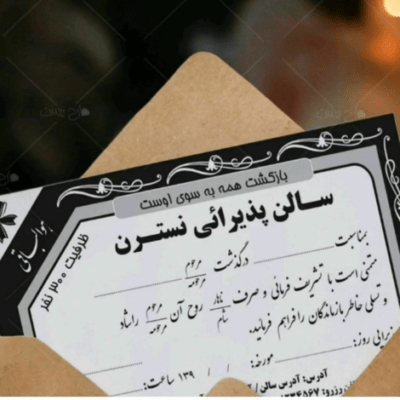 هوالباقی
بازگشت همه به سوی اوست
سالن پذیرائی نسترن
ظرفیت ۳۰۰ نفر
بمناسبت درگذشت مرحوم مرحومه
متمنی است با تشریف فرمائی و صرف ناهار شام روح آن مرحوم مرحومه را شاد
و تسلی خاطر بازماندگان را فراهم فرمائید.
پذیرایی روز: مورخه: / / ۱۳۹ ساعت:
آدرس: آدرس سالن /